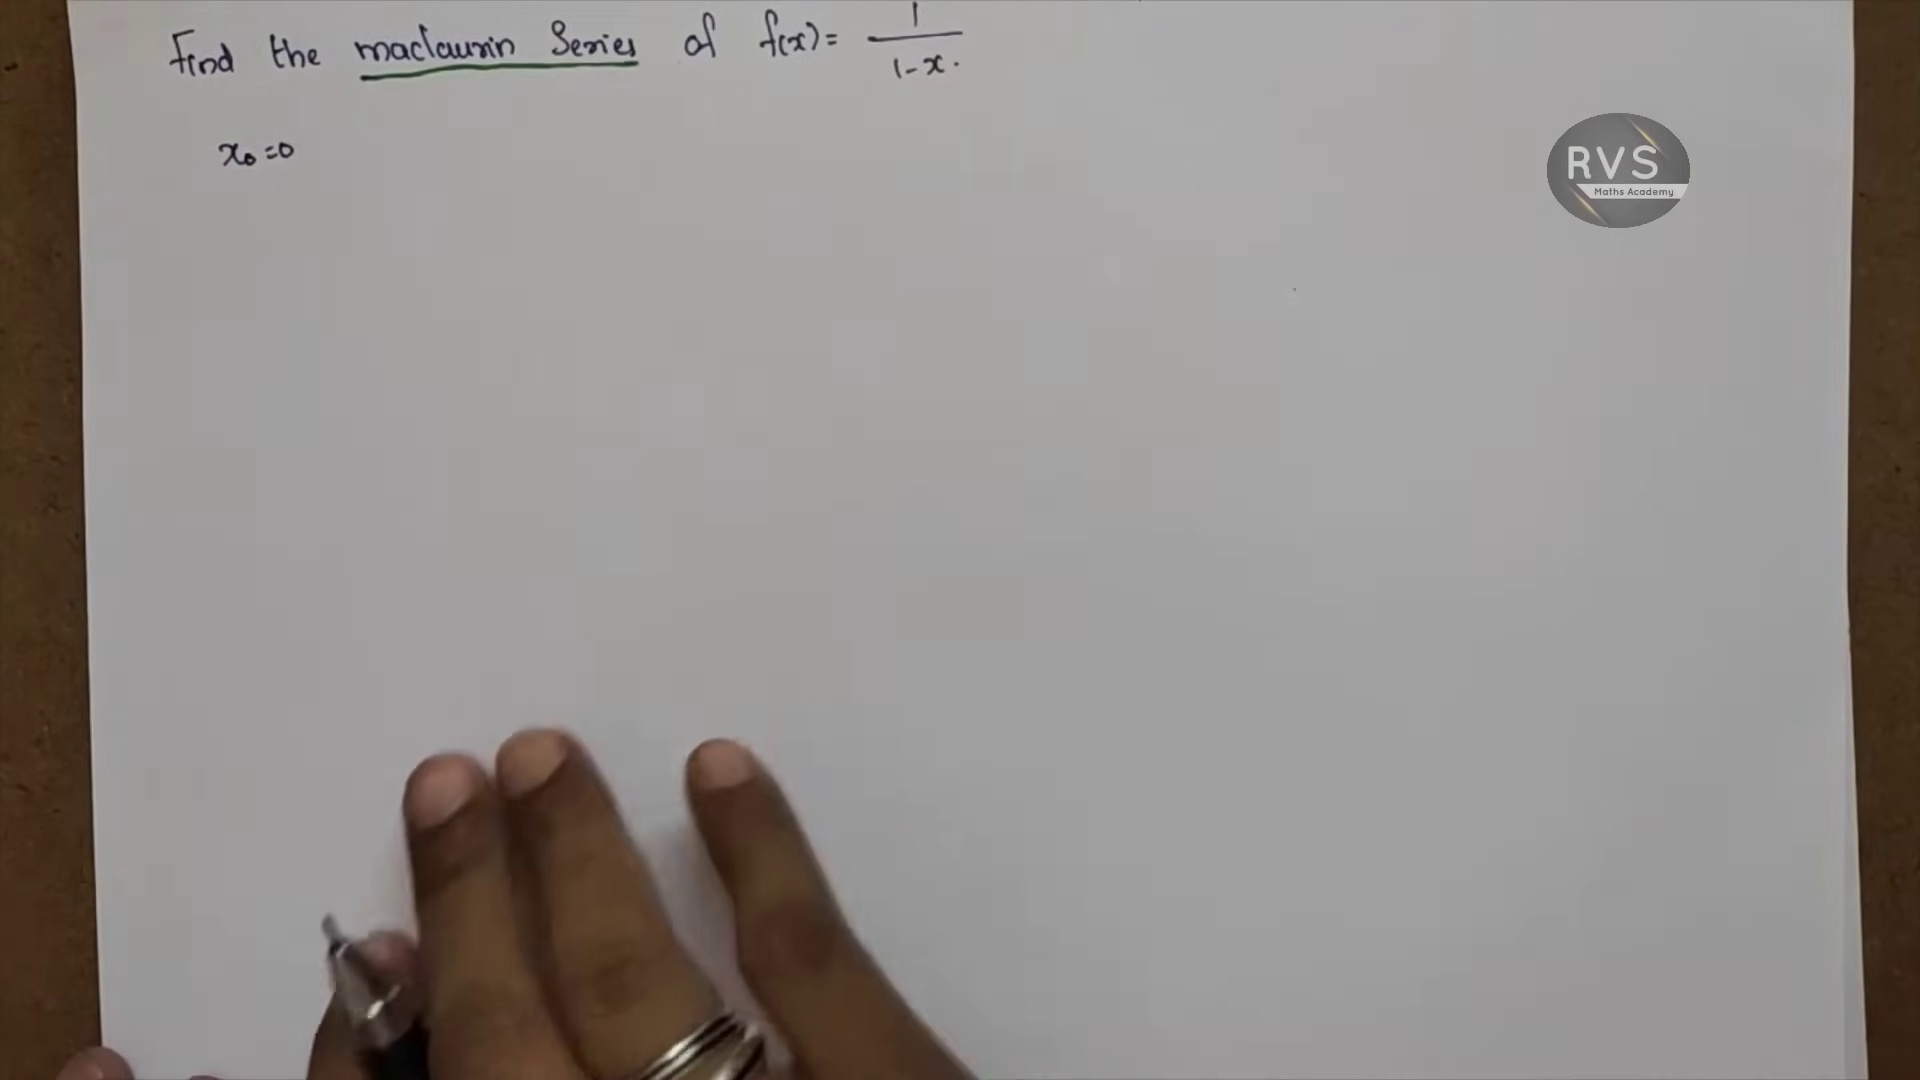 Find the maclaurin Series of f(x) = 1/1-x.
x₀=0
RVS
Maths Academy